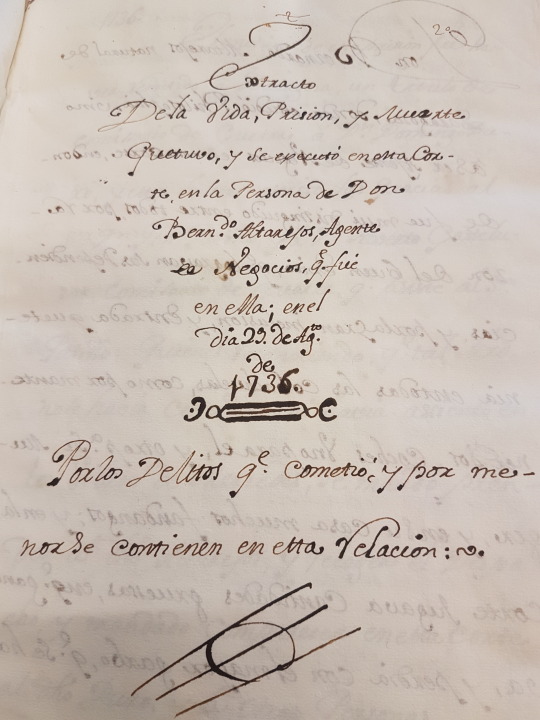 2º
Extracto
De la Vida, Prision, y Muerte
que tuvo, y se executó en esta Cor-
te, en la Persona de Don
Bern.do Altarejos, Agente
de Negocios, q.e fue
en ella; en el
dia 29. de Ag.to
de
1736.
Por los Delitos q.e cometió, y por me-
nor se contienen en esta Relacion: